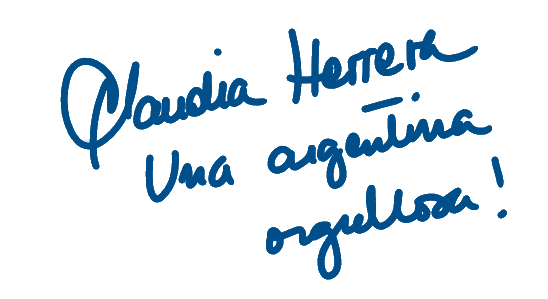 Claudia Herrera
Una argentina
orgullosa!